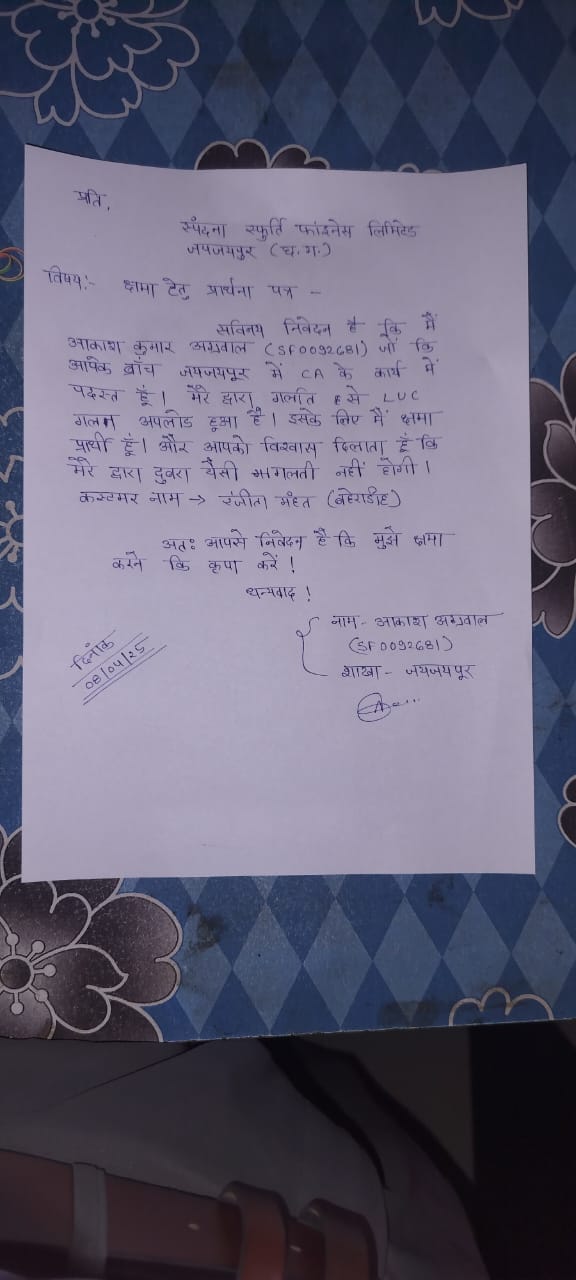 प्रति,
स्पंदना स्फुर्ति फांइनेस लिमिटेड
जयजयपुर (छ.ग.)
विषय:- क्षमा हेतु प्रार्थना पत्र -
सविनय निवेदन है कि मैं
आकाश कुमार अग्रवाल (SF0092681) जो कि
आपके ब्रांच जयजयपुर में CA के कार्य में
पदस्त हूँ। मेरे द्वारा गलति से LUC
गलत अपलोड हुआ है। इसके लिए मैं क्षमा
प्रार्थी हूँ। और आपको विश्वास दिलाता हूँ कि
मेरे द्वारा दुबरा यैसी गलती नहीं होगी।
कस्टमर नाम → रंजीता मंहत (बहेराडीह)
अतः आपसे निवेदन है कि मुझे क्षमा
करने कि कृपा करें!
धन्यवाद!
नाम - आकाश अग्रवाल
(SF0092681)
शाखा - जयजयपुर
दिनांक
08/04/25